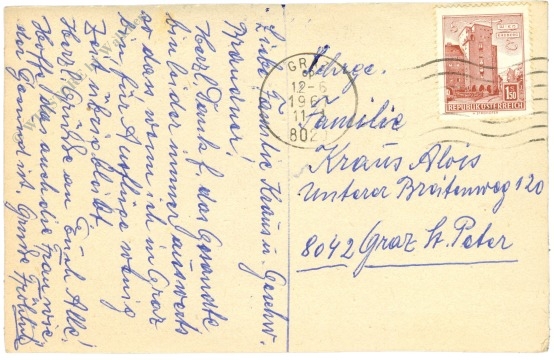 Liebe Familie Kraus u. Geschw.
Brandner!
Herzl. Dank f. das Gesandte
bin leider immer auswerts
so dass wenn ich in Graz
bin für Ausflüge wenig
Zeit übrig bleibt
Herzl. Grüße an Euch Alle!
Hoffe, daß auch die Frau wie-
der Gesund ist.
GRAZ
12-6
196
11-
802
REPUBLIK ÖSTERREICH
1.50
Familie
Kraus Alois
Unterer Breitenweg 120
8042 Graz St. Peter